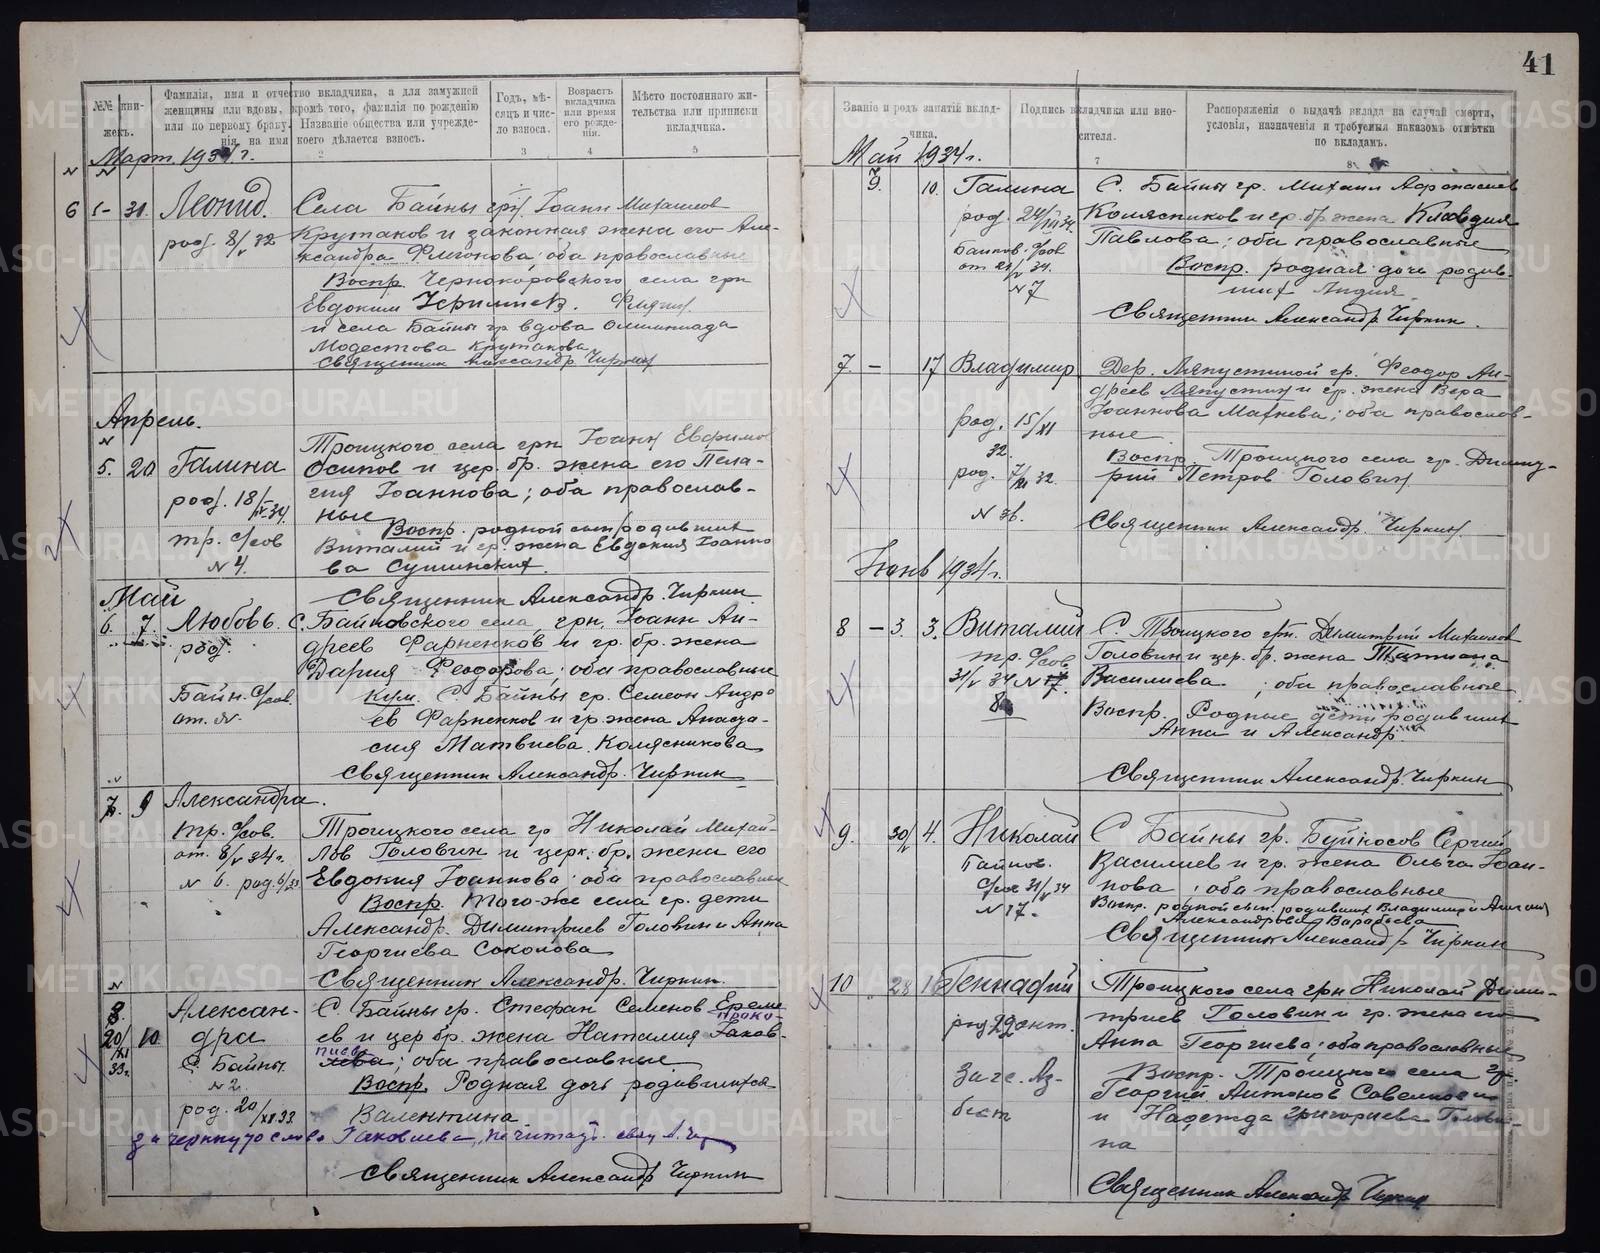 №№ кни-
жекъ.
Фамилія, имя и отчество вкладчика, а для замужней
женщины или вдовы, кромѣ того, фамилія по рожденію
или по первому браку. Названіе общества или учрежде-
нія, на имя коего дѣлается взносъ.
Годъ, мѣ-
сяцъ и чис-
ло взноса.
Возрастъ
вкладчика
или время
его рожде-
нія.
Мѣсто постояннаго жи-
тельства или приписки
вкладчика.
2 3 4 5
Март 1934 г.
N N
6 1– 31. Леонид.
род. 8/V 32
Села Байны гр. Іоанн Михаилов
Крутаков и законная жена его Але-
ксандра Флегонова; оба православные
Воспр. села грн
Евдоким
и села Байны гр вдова Олимпиада
Модестова Крутакова
Священник Александр Чиркин
Апрель.
N
5. 20 Галина
род. 18/IV-34
тр. с/сов
N 4.
Троицкого села грн Іоанн Евфимов
Осипов и цер. бр. жена его Пела-
гия Іоаннова; оба православ-
ные
Воспр. родной сын родивших
Виталий и гр. жена Евдокия Іоанно
ва Сушинских.
Священник Александр. Чиркин
Май
6. 7. Любовь.
род.
Байн. с/сов.
от. N.
С. Байновского села, грн. Іоанн Ан-
дреев Фарненков и гр. бр. жена
Дария Феодорова; оба православные
Кум. С. Байны гр. Семеон Андре
ев Фарненков и гр. жена Анаста-
сия Матвиева Колясникова
Священник Александр. Чиркин
N
7. 9 Александра.
тр. с/сов.
от. 8/V 34 г.
N 6. род. 6/
Троицкого села гр Николай Михай-
лов Головин и церк. бр. жена его
Евдокия Іоаннова; оба православные
Воспр. того-же села гр. дети
Александр. Димитриев Головин и Анна
Георгиева Соколова
Священник Александр. Чиркин.
N
8. 20/XI 33г. 10 Алексан-
дра
С. Байны.
N 2.
род. 20/XI 33.
С. Байны гр. Стефан Семенов Ереме
ев и цер бр. жена Наталия Іаков-
Проко-
пиева
лева; оба православные
Воспр. Родная дочь родившихся
Валентина
Зачеркнутое слово Іаковлева, не читать. свящ А. Чир
Священник Александр Чиркин
41
Званіе и родъ занятій вклад-
чика.
Подпись вкладчика или вно-
сителя.
Распоряженія о выдачѣ вклада на случай смерти,
условія, назначенія и требуемыя наказомъ отмѣтки
по вкладамъ.
7 8
Май 1934 г.
9. 10. Галина
род. 24/III 34.
Байнов. с/сов
от 21/V 34.
N 7
С. Байны гр. Михаил Афонасиев
Колясников и гр. бр жена Клавдия
Павлова; оба православные
Воспр. родная дочь родив-
ших Лидия
Священник Александр Чиркин.
7. – 17 Владимир
род. 15/XI
32.
род. 7/XI 32.
N 36.
Дер. Ляпустиной гр. Феодор Ан-
дреев Ляпустин и гр. жена Вера
Іоаннова Матнева; оба православ-
ные.
Воспр. Троицкого села гр. Димит-
рий Петров Головин
Священник Александр. Чиркин.
Июнь 1934 г.
8 – 3. 3. Виталий
тр. с/сов
31/V 34 N 17.
8
С. Троицкого грн. Димитрий Михаилов
Головин и цер. бр. жена Татиана
Василиева; оба православные
Воспр. Родные дети родивших
Анна и Александр.
Священник Александр. Чиркин
9. 30/V 4. Николай
Байнов.
с/сов 31/V 34
N 17.
С Байны гр. Буйносов Сергий
Василиев и гр. жена Ольга Іоан-
нова; оба православные
Воспр. родной сын. родивших Владимир и
Александровна Варабьева
Священник Александр Чиркин
10 28 16 Геннадий
род 29 окт.
Загс. Аз-
бест
Троицкого села грн Николай Дими-
триев Головин и гр. жена его
Анна Георгиева; оба православные
Воспр. Троицкого села гр.
Георгий Антонов Савелков
и Надежда Григориева Голови-
на
Священник Александр Чиркин
METRIKI.GASO-URAL.RU